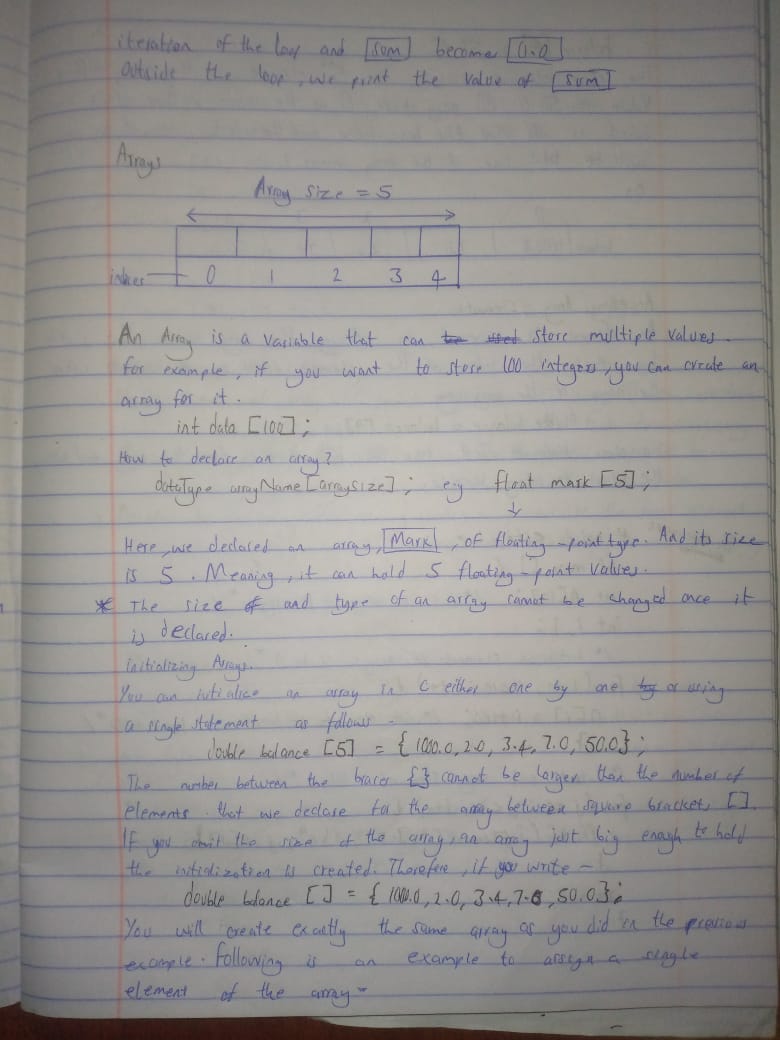 iteration of the loop and sum become
Outside the loop, we print the value of sum
Arrays
Array size = 5
0 1 2 3 4
An Array is a variable that can be used store multiple values.
for example, if you want to store 100 integers, you can create an
array for it.
int data [100];
How to declare an array?
dataType arrayName [arraysize]; e.g float mark [5];
Here, we declared an array, Mark, of floating-point type. And its size
is 5. Meaning, it can hold 5 floating-point values.
* The size of and type of an array cannot be changed once it
is declared.
Initializing Arrays.
You can initialize an array in C either one by one by or using
a single statement as follows -
double balance [5] = {1000.0, 2.0, 3.4, 7.0, 50.0};
The number between the braces {} cannot be larger than the number of
elements that we declare for the array between square brackets [].
If you omit the size of the array, an array just big enough to hold
the initialization is created. Therefore, if you write -
double balance [] = {1000.0, 2.0, 3.4, 7.0, 50.0};
You will create exactly the same array as you did in the previous
example. Following is an example to assign a single
element of the array -